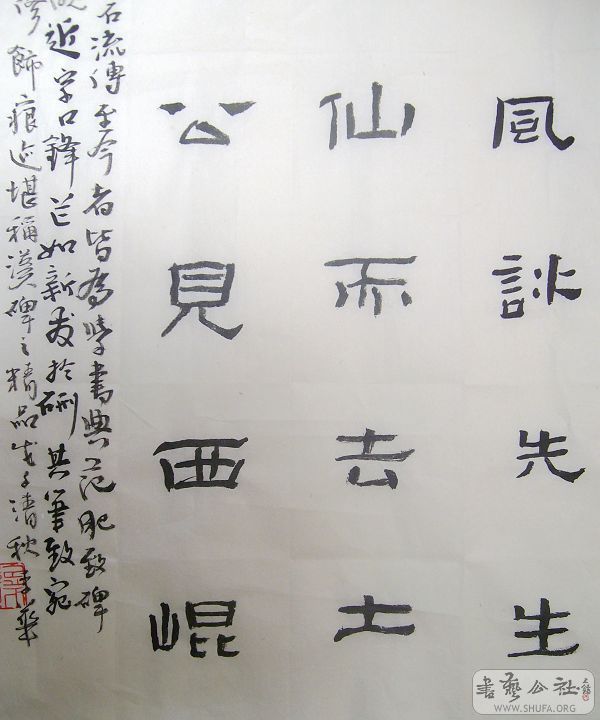 風許先生
仙而去土
公見西崐
石流傳至今者皆為學書典范肥致碑
近字口鋒芒如新發於硎其筆致宛
修飾痕迹堪稱漢碑之精品戊子清秋華
書藝公社
WWW.SHUFA.ORG